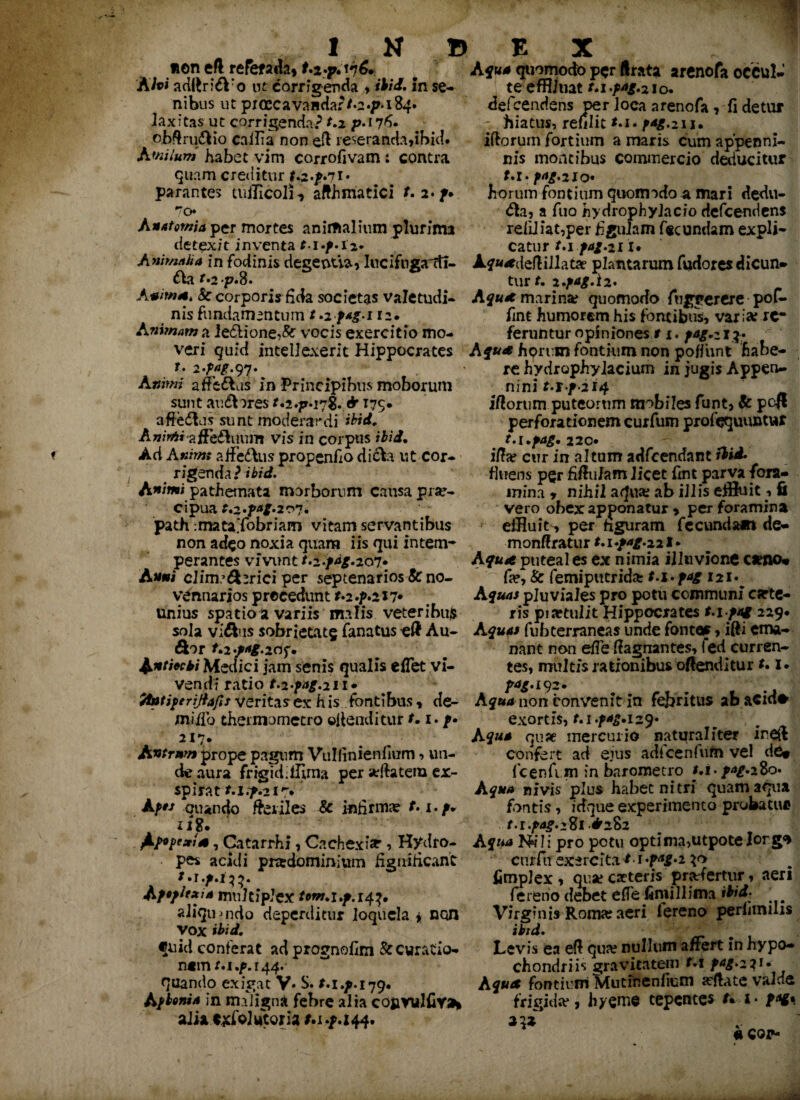 I N D E X
non est reseranda, t.2.p.176.
Alvi adstrictio ut corrigenda, ibid. in se-
nibus ut præcavanda? t.2.p.184.
laxitas ut corrigenda? t.2 p.176.
obstructio cassia non est reseranda, ibid.
Amilum habet vim corrosivam: contra
quam creditur t.2.p.71.
parantes tussicoli, asthmatici t. 2. p.
70.
Anatomia per mortes animalium plurima
detexit inventa t.1.p.12.
Animalia in fodinis degentia, lucifuga di-
cta t.2.p.8.
Animæ, & corporis fida societas valetudi-
nis fundamentum t.2 pag.112.
Animam a lectione, & vocis exercitio mo-
veri quid intellexerit Hippocrates
t. 2.pag.97.
Animi affectus in Principibus moborum
sunt auctores t.2.p.178. & 179.
affectus sunt moderandi ibid.
Animi affectuum vis in corpus ibid.
Ad Animi affectus propensio dicta ut cor-
rigenda? ibid.
Animi pathemata morborum causa præ-
cipua t.2.pag.207.
pathemata sobriam vitam servantibus
non adeo noxia quam iis qui intem-
perantes vivunt t.2.pag.207.
Anni climacterici per septenarios & no-
vennarios procedunt t.2.p.217.
unius spatio a variis malis veteribus
sola victus sobrietate sanatus est Au-
ctor t.2.pag.205.
Antiochi Medici jam senis qualis esset vi-
vendi ratio t.2.pag.211.
Antiperistasis veritas ex his fontibus, de-
misso thermometro ostenditur t. 1. p.
217.
Antrum prope pagum Vulsiniensium, un-
de aura frigidissima per æstatem ex-
spirat t.1.p.217.
Apes quando steriles & infirmæ t. 1. p.
118.
Apopexia, Catarrhi, Cachexiæ, Hydro-
pes acidi prædominium significant
t.1.p.133.
Apoplexia multiplex tom.1.p.143.
aliquando deperditur loquela, non
vox ibid.
quid conferat ad prognosim & curatio-
nem t.1.p.144.
quando exigat V. S. t.1.p.179.
Aphonia in maligna febre alia convulsiva,
alia exsolutoria t.1.p.144.
Aqua quomodo per strata arenosa occul-
te effluat t.1.pag.210.
descendens per loca arenosa, si detur
hiatus, resilit t.1. pag.211.
istorum fortium a maris cum appenni-
nis montibus commercio deducitur
t.1. pag.210.
horum fontium quomodo a mari dedu-
cta, a suo hydrophylacio descendens
resiliat, per figulam secundam expli-
catur t.1 pag.211.
Aquæ destillatæ plantarum sudores dicun-
tur t. 2.pag.12.
Aquæ marinæ quomodo suggerere pos-
sint humorem his fontibus, variæ re-
feruntur opiniones t 1. pag.213.
Aquæ horum fontium non possunt habe-
re hydrophylacium in jugis Appen-
nini t.1.p.214
istorum puteorum mobiles sunt, & post
perforationem cursum prosequuntur
t.1.pag. 220.
istæ cur in altum adscendant ibid.
fluens per fistulam licet sint parva fora-
mina, nihil aquæ ab illis effluit, si
vero obex apponatur, per foramina
effluit, per figuram secundam de-
monstratur t.1.pag.221.
Aquæ puteales ex nimia illuvione cæno-
sæ, & semiputridæ t.1.pag 121.
Aquas pluviales pro potu communi cæte-
ris prætulit Hippocrates t.1 pag 229.
Aquas subterraneas unde fontes, isti ema-
nant non esse stagnantes, sed curren-
tes, multis rationibus ostenditur t. 1.
pag.192.
Aqua non convenit in febritus ab acido
exortis, t.1.pag.129.
Aqua quæ mercurio naturaliter inest
confert ad ejus adscensum vel de-
scensum in barometro t.1. pag.280.
Aqua nivis plus habet nitri quam aqua
fontis, idque experimento probatur
t.1.pag.281.&282
Aqua Nili pro potu optima, utpote longo
cursu exercita t.1.pag.230
simplex, quæ cæteris præfertur, aeri
sereno debet esse simillima ibid.
Virginis Romæ aeri sereno persimilis
ibid.
Levis ea est quæ nullum affert in hypo-
chondriis gravitatem t.1 pag.231.
Aquæ fontium Mutinensium æstate valde
frigidæ, hyeme tepentes t. 1. pag.
232
& cor-